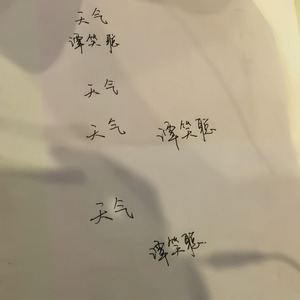 天气
谭笑聪
天气
天气 谭笑聪
天气
谭笑聪